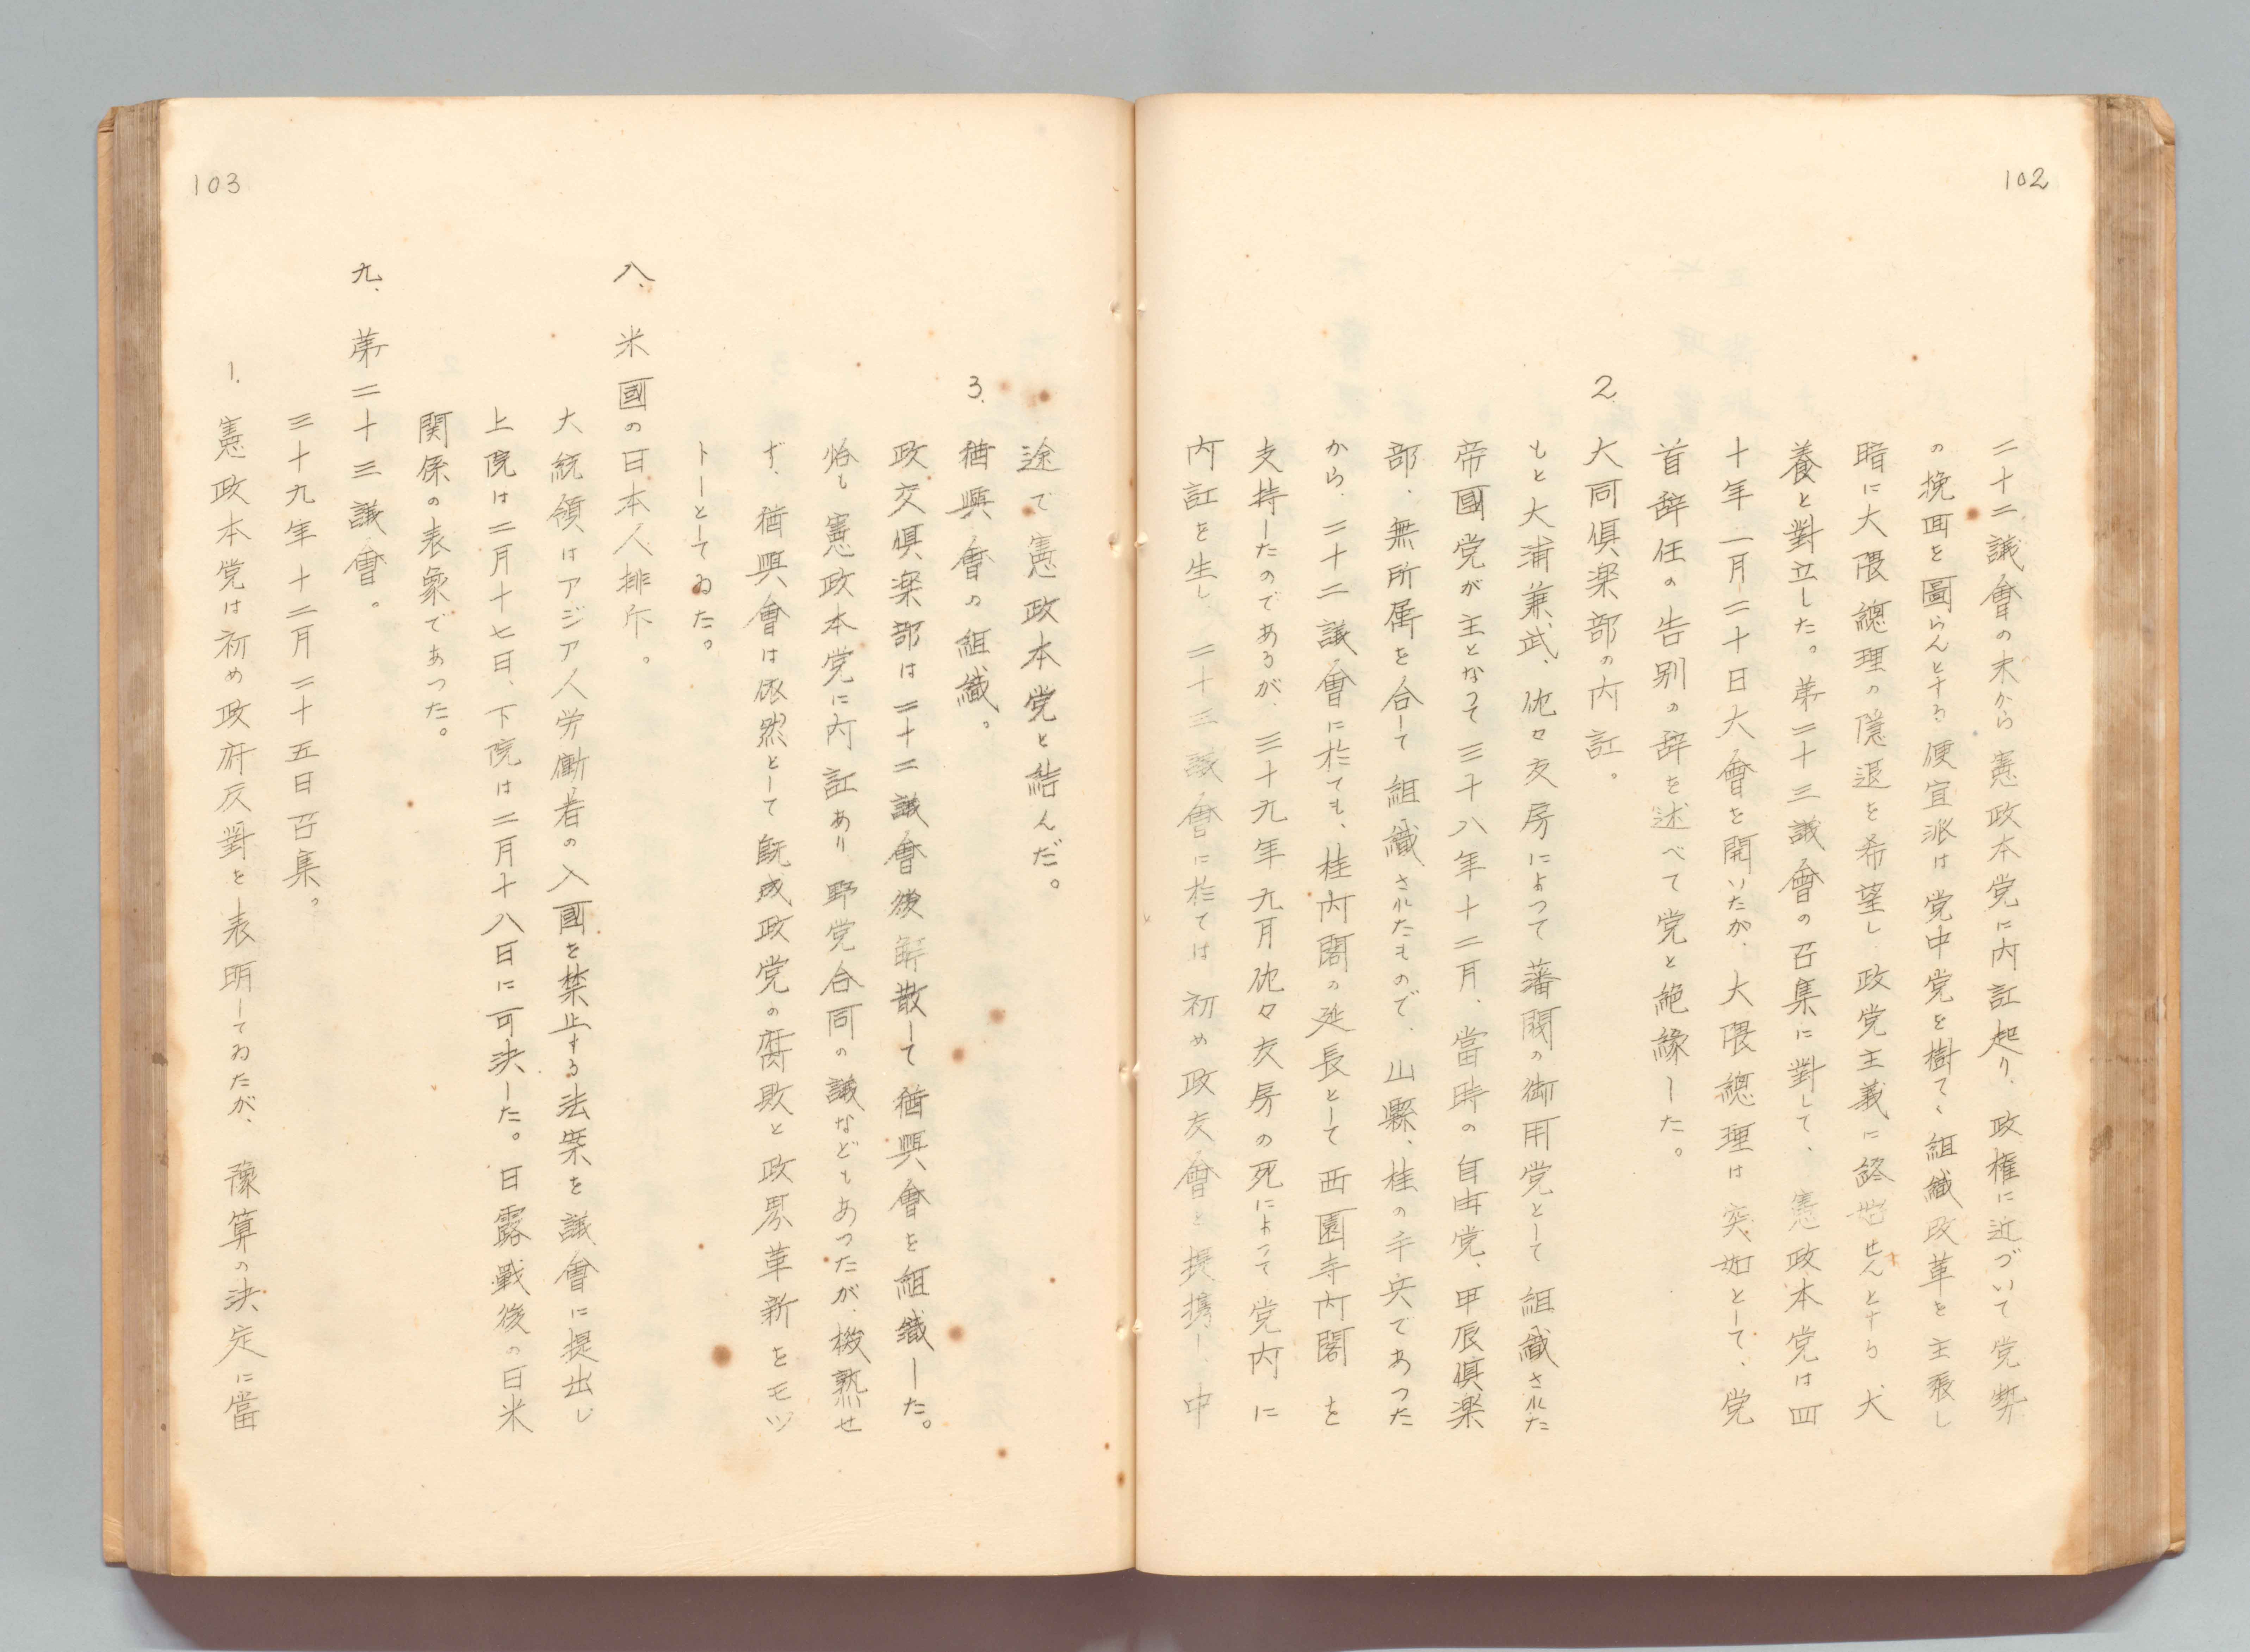 102
二十二議會の末から憲政本党に内訌起り、政権に近づいて党勢
の挽回を圖らんとする便宜派は党中党を樹てゝ組織改革を主張し
暗に大隈總理の隱退を希望し政党主義に終始せんとする犬
養と對立した。第二十三議會の召集に對して、憲政本党は四
十年一月二十日大會を開いたが、大隈總理は突如として、党
首辞任の告別の辞を述べて党と絶緣した。
2. 大同倶楽部の内訌。
もと大浦兼武、佐々友房によつて藩閥の御用党として組織された
帝國党が主となつて三十八年十二月、當時の自由党、甲辰倶楽
部、無所属を合して組織されたもので、山縣、桂の手兵であつた
から、二十二議會に於ても、桂内閣の延長として西園寺内閣を
支持したのであるが、三十九年九月佐々友房の死によつて党内に
内訌を生し、二十三議會に於ては初め政友會と提携し、中
103
途で憲政本党と結んだ。
3. 猶興會の組織。
政交倶楽部は二十二議會後解散して猶興會を組織した。
恰も憲政本党に内訌あり野党合同の議などもあつたが、機熟せ
ず、猶興會は依然として既成政党の腐敗と政界革新をモツ
トーとしてゐた。
八、米國の日本人排斥。
大統領はアジア人労働者の入國を禁止する法案を議會に提出し
上院は二月十七日、下院は二月十八日に可決した。日露戰後の日米
関係の表象であつた。
九、第二十三議會。
三十九年十二月二十五日召集。
1. 憲政本党は初め政府反對を表明してゐたが、豫算の決定に當